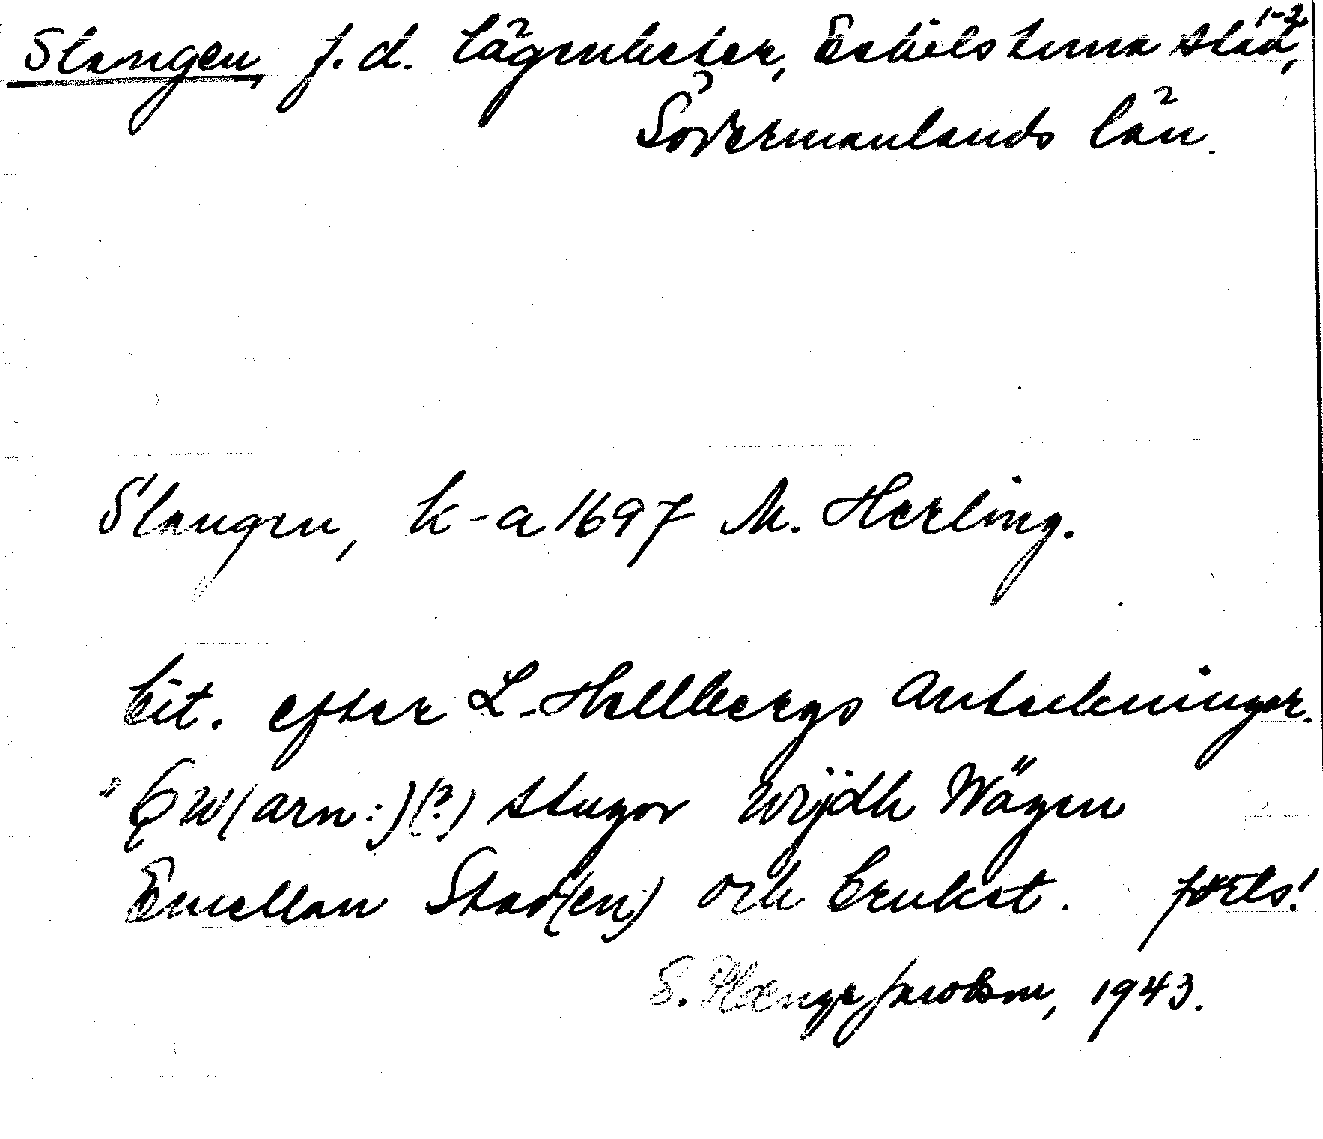 Slangen, f.d. lägenheter, Eskilstuna stad, 1-2
Södermanlands län.
Slangen, k-a 1697 M. Herling.
Cit. efter L. Hellbergs anteckningar.
" Qw(arn:)(?) stugor widh Wägen
Emellan Stad(en) och bruket. forts!
S. Jacobson, 1943.